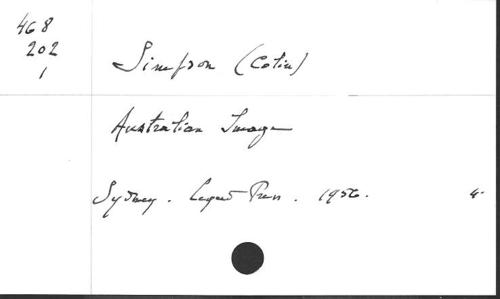 468
202
1
Simpson (Colin)
Australian Image
Sydney. Legend Press. 1956. 4°